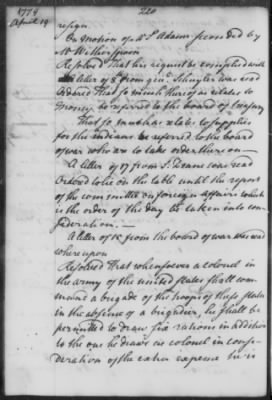 1779
April 19
220
resign.
On motion of Mr S Adams seconded by
Mr Witherspoon
Resolved That his request be complied with
A letter of 8th from genl Schuyler was read
Ordered That so much thereof as relates to
money be referred to the board of treasury
That so much as relates to supplies
for the Indians be referred to the board
of war who are to take order thereon —
A letter of 17 from S. Deane was read
Ordered to lie on the table until the report
of the committee on foreign affairs which
is the order of the day be taken into con-
sideration. —
A letter of 15 from the board of war was read
whereupon
Resolved That whensoever a colonel in
the army of the united states shall com-
mand a brigade of the troops of these states
in the absence of a brigadier, he shall be
permitted to draw six rations in addition
to the one he draws as colonel in consi-
deration of the extra expence he is